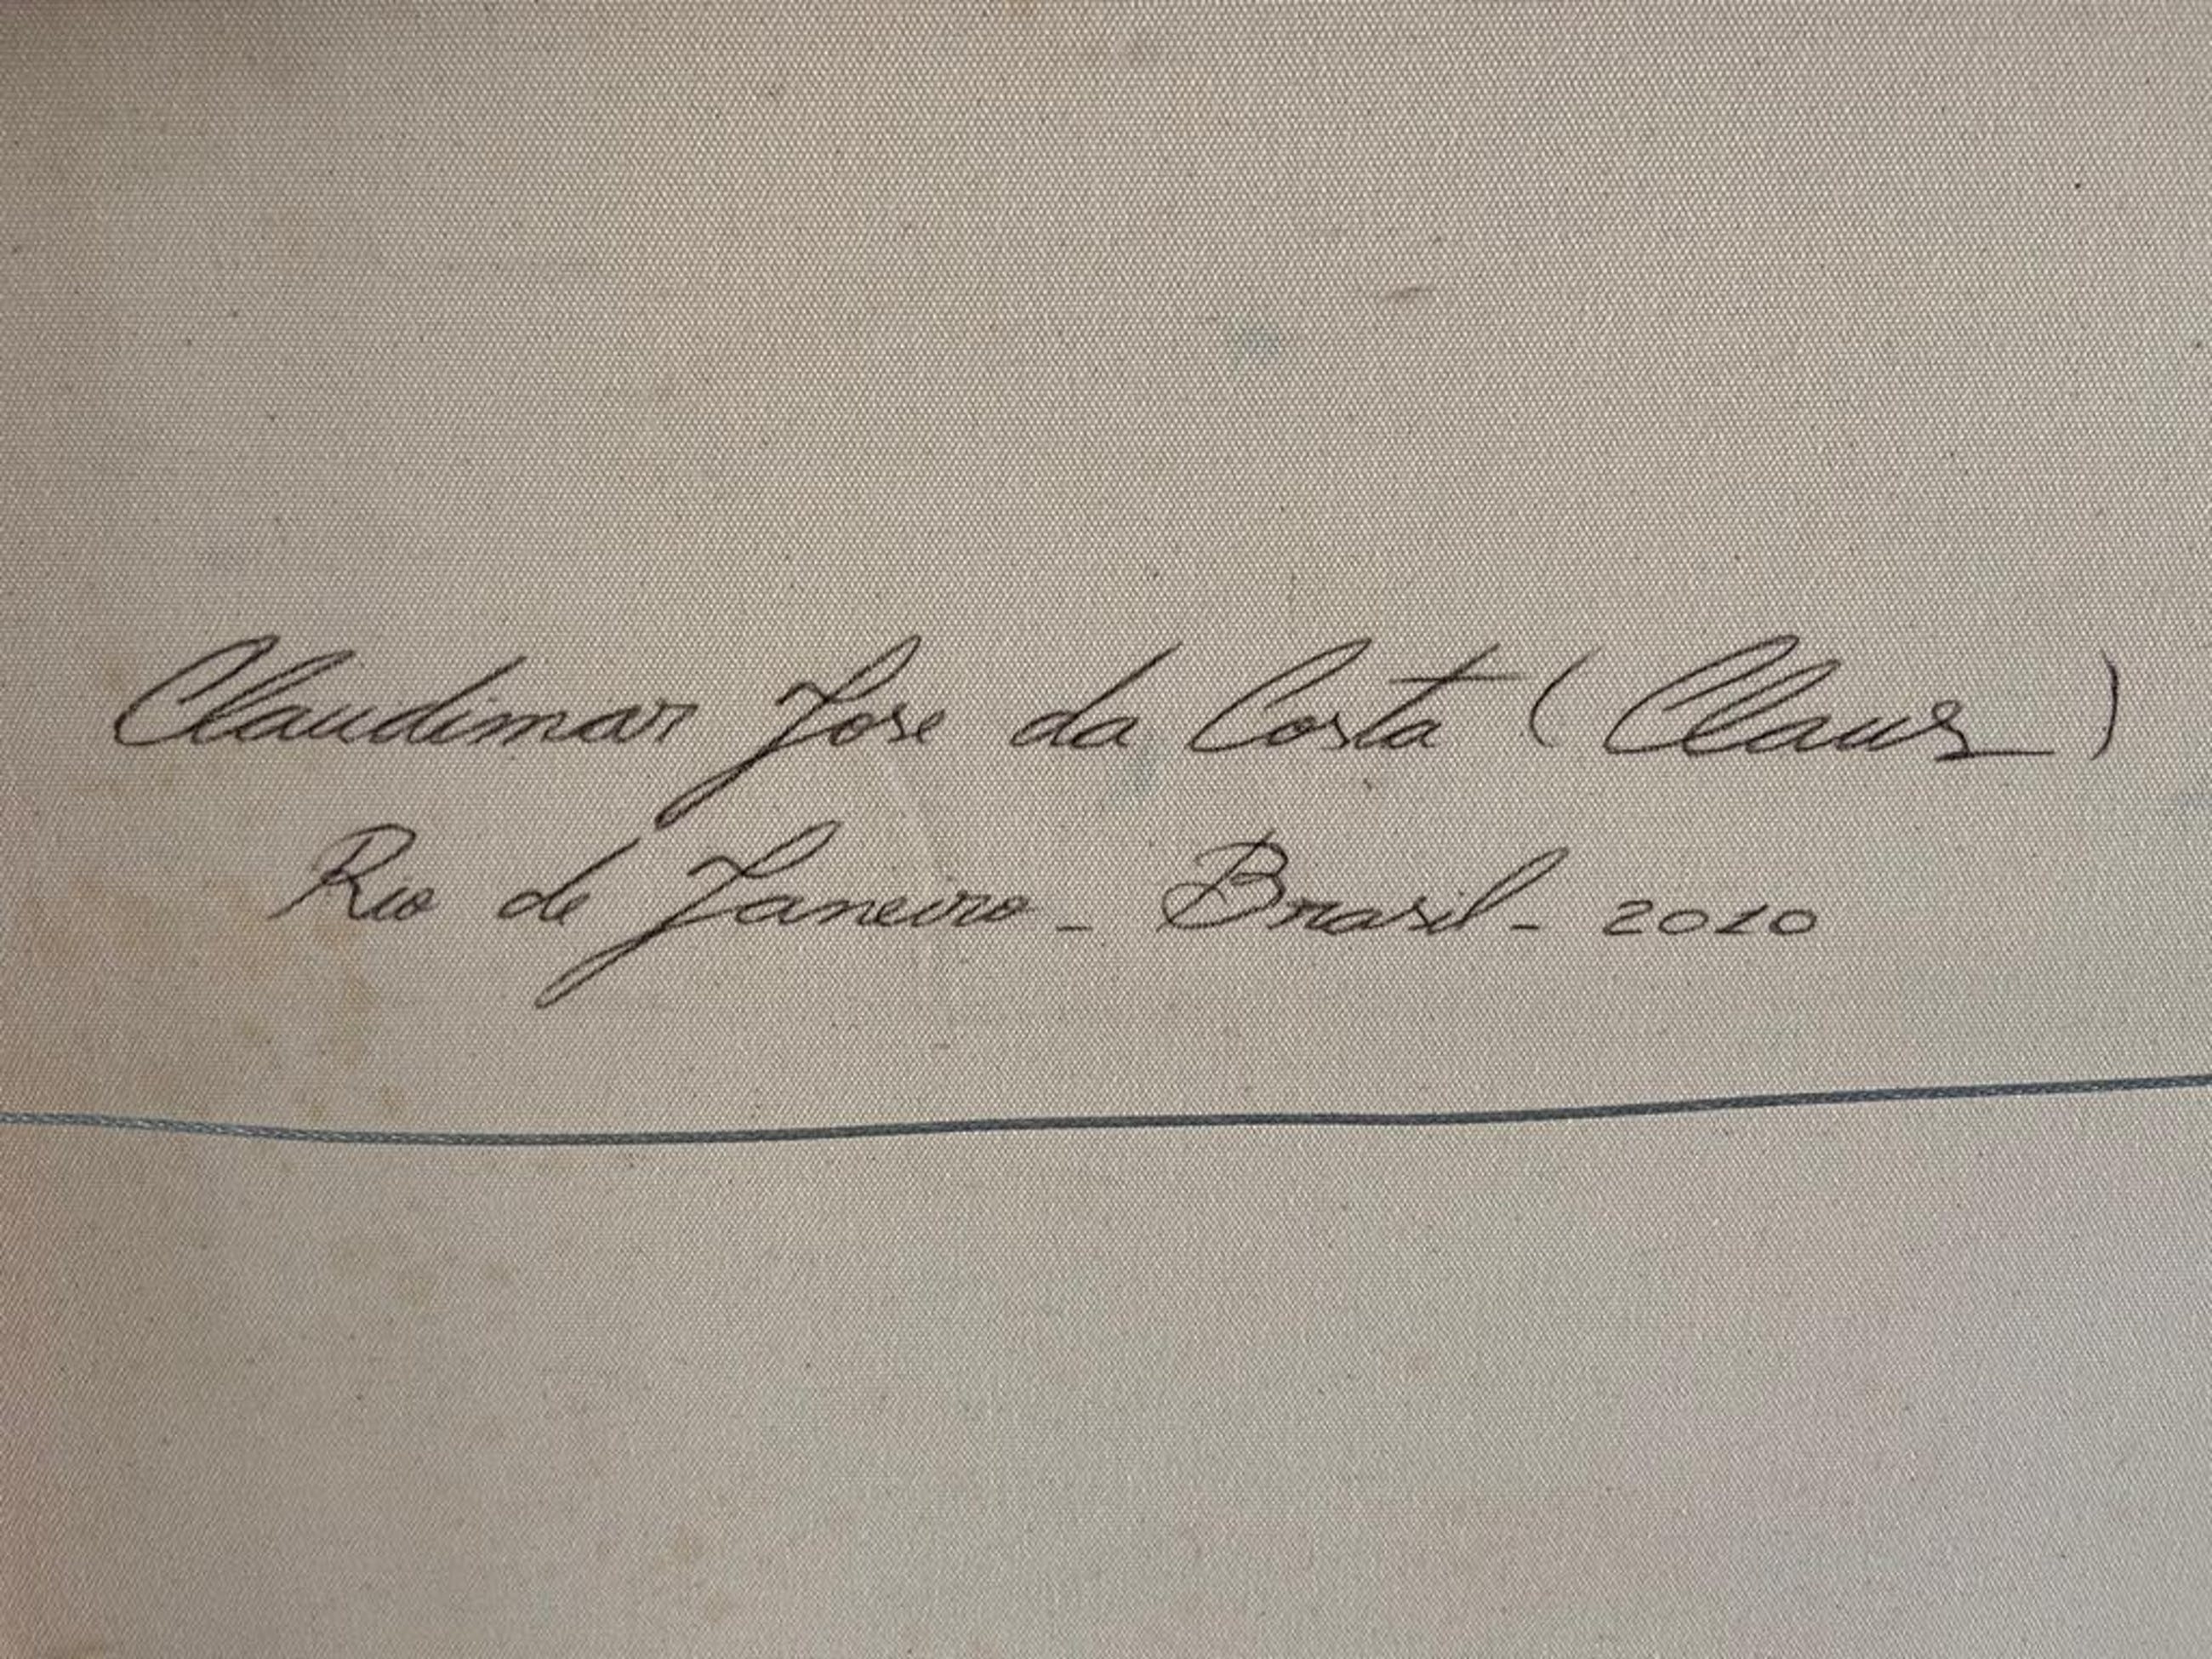 Claudimar Jose da Costa ( Claus )
Rio de Janeiro - Brasil - 2010